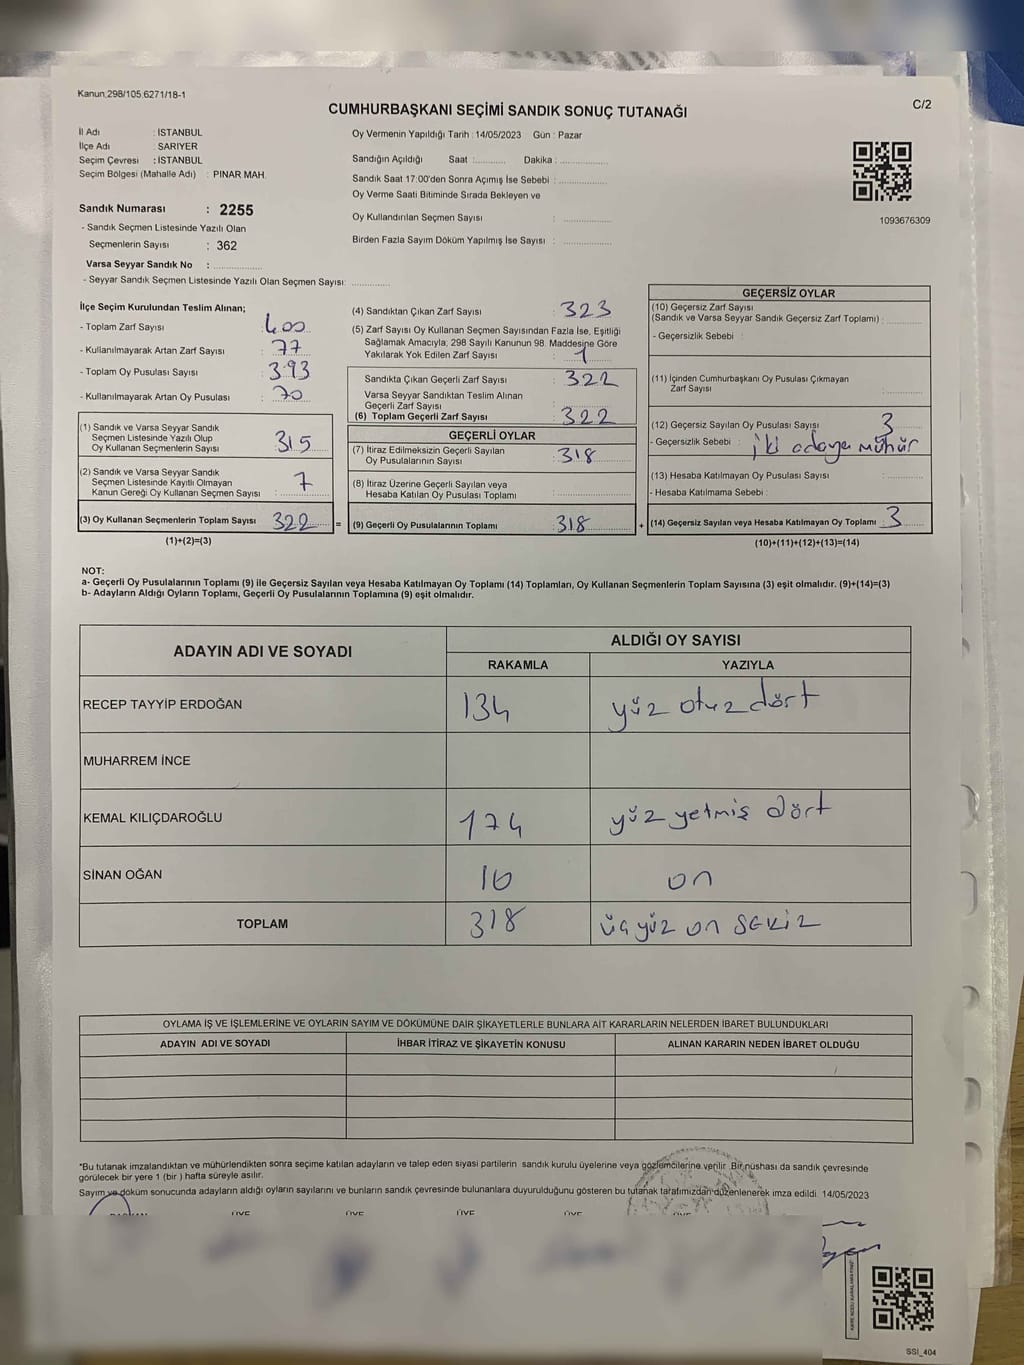 Kanun.298/105.6271/18-1
C/2
CUMHURBAŞKANI SEÇİMİ SANDIK SONUÇ TUTANAĞI
İl Adı : İSTANBUL
İlçe Adı : SARIYER
Seçim Çevresi : İSTANBUL
Seçim Bölgesi (Mahalle Adı) : PINAR MAH.
Sandık Numarası : 2255
- Sandık Seçmen Listesinde Yazılı Olan
Seçmenlerin Sayısı : 362
Varsa Seyyar Sandık No :
- Seyyar Sandık Seçmen Listesinde Yazılı Olan Seçmen Sayısı:
Oy Vermenin Yapıldığı Tarih : 14/05/2023 Gün : Pazar
Sandığın Açıldığı Saat : Dakika :
Sandık Saat 17:00'den Sonra Açımış İse Sebebi :
Oy Verme Saati Bitiminde Sırada Bekleyen ve
Oy Kullandırılan Seçmen Sayısı :
Birden Fazla Sayım Döküm Yapılmış İse Sayısı :
1093676309
İlçe Seçim Kurulundan Teslim Alınan;
- Toplam Zarf Sayısı : 400
- Kullanılmayarak Artan Zarf Sayısı : 77
- Toplam Oy Pusulası Sayısı : 393
- Kullanılmayarak Artan Oy Pusulası : 70
(1) Sandık ve Varsa Seyyar Sandık
Seçmen Listesinde Yazılı Olup
Oy Kullanan Seçmenlerin Sayısı 315
(2) Sandık ve Varsa Seyyar Sandık
Seçmen Listesinde Kayıtlı Olmayan
Kanun Gereği Oy Kullanan Seçmen Sayısı : 7
(3) Oy Kullanan Seçmenlerin Toplam Sayısı 322 =
(1)+(2)=(3)
(4) Sandıktan Çıkan Zarf Sayısı : 323
(5) Zarf Sayısı Oy Kullanan Seçmen Sayısından Fazla İse, Eşitliği
Sağlamak Amacıyla, 298 Sayılı Kanunun 98. Maddesine Göre
Yakılarak Yok Edilen Zarf Sayısı : 1
Sandıkta Çıkan Geçerli Zarf Sayısı : 322
Varsa Seyyar Sandıktan Teslim Alınan
Geçerli Zarf Sayısı
(6) Toplam Geçerli Zarf Sayısı : 322
GEÇERLİ OYLAR
(7) İtiraz Edilmeksizin Geçerli Sayılan
Oy Pusulalarının Sayısı : 318
(8) İtiraz Üzerine Geçerli Sayılan veya
Hesaba Katılan Oy Pusulası Toplamı
(9) Geçerli Oy Pusulalarının Toplamı : 318 +
GEÇERSİZ OYLAR
(10) Geçersiz Zarf Sayısı
(Sandık ve Varsa Seyyar Sandık Geçersiz Zarf Toplamı) :
- Geçersizlik Sebebi :
(11) İçinden Cumhurbaşkanı Oy Pusulası Çıkmayan
Zarf Sayısı :
(12) Geçersiz Sayılan Oy Pusulası Sayısı : 3
- Geçersizlik Sebebi : iki adaya mühür
(13) Hesaba Katılmayan Oy Pusulası Sayısı :
- Hesaba Katılmama Sebebi :
(14) Geçersiz Sayılan veya Hesaba Katılmayan Oy Toplamı : 3
(10)+(11)+(12)+(13)=(14)
NOT:
a- Geçerli Oy Pusulalarının Toplamı (9) ile Geçersiz Sayılan veya Hesaba Katılmayan Oy Toplamı (14) Toplamları, Oy Kullanan Seçmenlerin Toplam Sayısına (3) eşit olmalıdır. (9)+(14)=(3)
b- Adayların Aldığı Oyların Toplamı, Geçerli Oy Pusulalarının Toplamına (9) eşit olmalıdır.
ADAYIN ADI VE SOYADI
ALDIĞI OY SAYISI
RAKAMLA YAZIYLA
RECEP TAYYİP ERDOĞAN 134 yüz otuz dört
MUHARREM İNCE
KEMAL KILIÇDAROĞLU 174 yüz yetmiş dört
SİNAN OĞAN 10 on
TOPLAM 318 üçyüz on sekiz
OYLAMA İŞ VE İŞLEMLERİNE VE OYLARIN SAYIM VE DÖKÜMÜNE DAİR ŞİKAYETLERLE BUNLARA AİT KARARLARIN NELERDEN İBARET BULUNDUKLARI
ADAYIN ADI VE SOYADI İHBAR İTİRAZ VE ŞİKAYETİN KONUSU ALINAN KARARIN NEDEN İBARET OLDUĞU
*Bu tutanak imzalandıktan ve mühürlendikten sonra seçime katılan adayların ve talep eden siyasi partilerin sandık kurulu üyelerine veya gözlemcilerine verilir. Bir nüshası da sandık çevresinde
görülecek bir yere 1 (bir ) hafta süreyle asılır.
Sayım ve döküm sonucunda adayların aldığı oyların sayılarını ve bunların sandık çevresinde bulunanlara duyurulduğunu gösteren bu tutanak tarafımızdan düzenlenerek imza edildi. 14/05/2023
ÜYE ÜYE ÜYE ÜYE ÜYE
SSİ_404